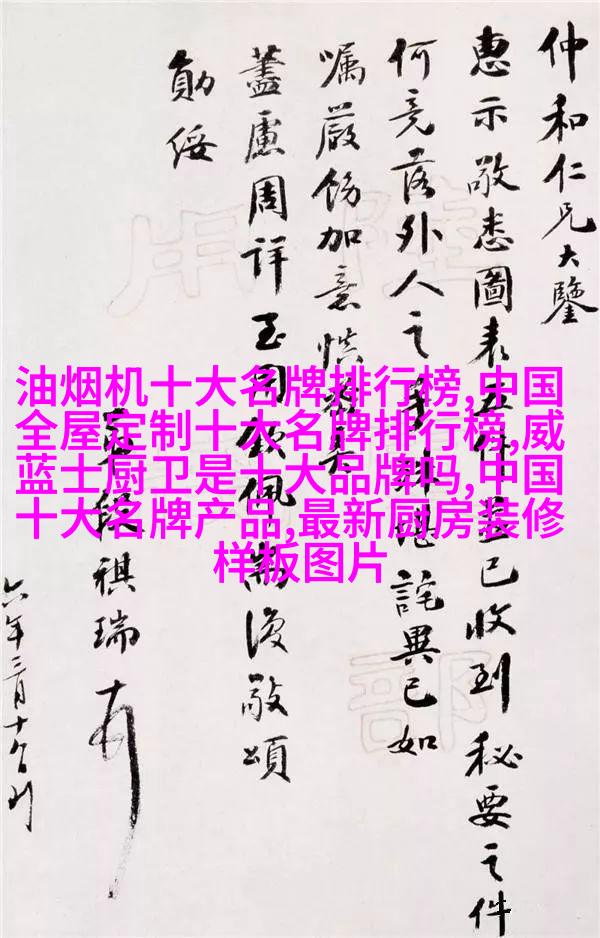 仲和仁兄大鑒
惠示敬悉圖表五件並已收到秘要之件
何竟落外人之手殊詫異已如
囑嚴飭加意慎
藎慮周詳至周欽佩耑復敬頌
勛綏
段祺瑞
六年三月十日
油烟机十大名牌排行榜,中国
全屋定制十大名牌排行榜,威
蓝士厨卫是十大品牌吗,中国
十大名牌产品,最新厨房装修
样板图片